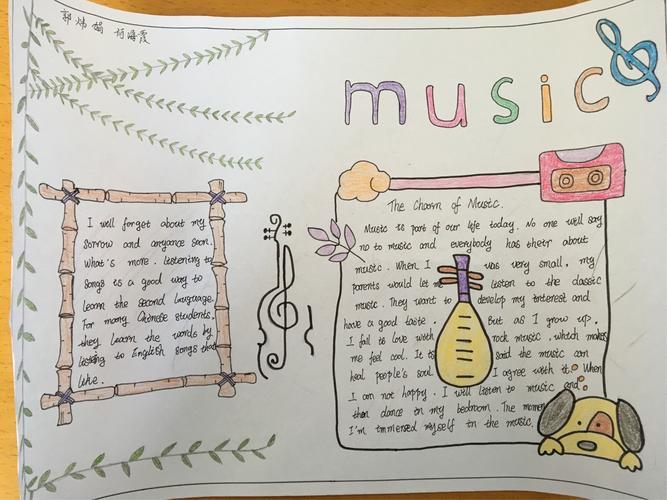 郭炜娟 何海霞
music
The Charm of Music.
Music is part of our life today. No one will say
no to music and everybody has their about
music. When I was very small, my
parents would let me listen to the classic
music. They want to develop my interest and
have a good taste. But as I grow up,
I fall to love with rock music, which makes
me feel cool. It is said the music can
heal people's soul. I agree with it. When
I am not happy, I will listen to music and
then dance in my bedroom. The moment
I'm immersed myself in the music.
I will forget about my
sorrow and anyance soon.
What's more, listening to
songs is a good way to
learn the second language.
For many Chinese students,
they learn the words by
listening to English songs that
like.